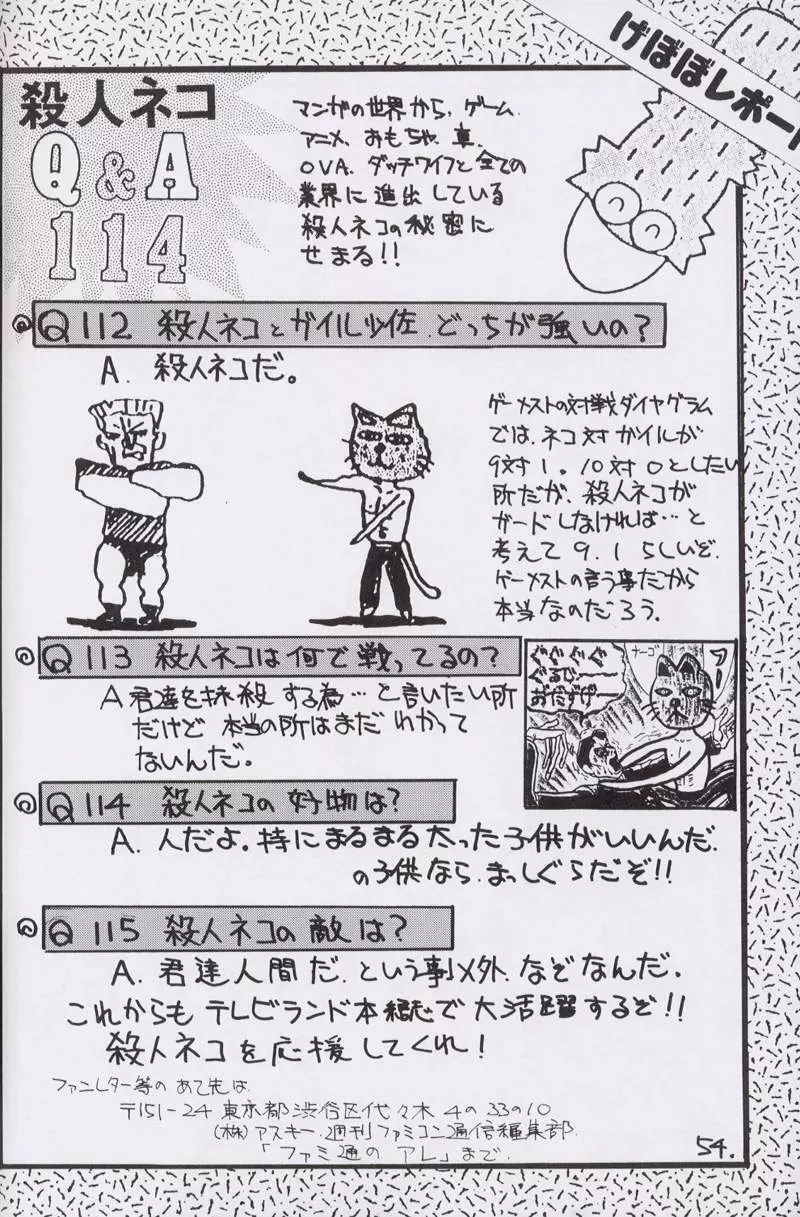 げぼぼレポート
殺人ネコ
Q&A
114
マンガの世界から、ゲーム、
アニメ、おもちゃ、車、
OVA、ダッチワイフと全ての
業界に進出している
殺人ネコの秘密に
せまる!!
Q112 殺人ネコとガイル少佐、どっちが強いの?
A. 殺人ネコだ。
ゲーメストの対戦ダイヤグラム
では、ネコ対ガイルが
9対1。10対0としたい
所だが、殺人ネコが
ガードしなければ…と
考えて9.1らしいぞ。
ゲーメストの言う事だから
本当なのだろう。
Q113 殺人ネコは何で戦ってるの?
A 君達を抹殺する為…と言いたい所
だけど本当の所はまだわかって
ないんだ。
ナーゴ
フー
ぐぐぐぐ
ぐるじー
おだずげー
Q114 殺人ネコの好物は?
A. 人だよ。特にまるまる太った子供がいいんだ。
の子供なら、まっしぐらだぞ!!
Q115 殺人ネコの敵は?
A. 君達人間だ、という事以外、なぞなんだ。
これからもテレビランド本誌で大活躍するぞ!!
殺人ネコを応援してくれ!
ファンレター等のあて先は
〒151-24 東京都渋谷区代々木4の33の10
(株)アスキー、週刊ファミコン通信編集部
「ファミ通のアレ」まで。
54.